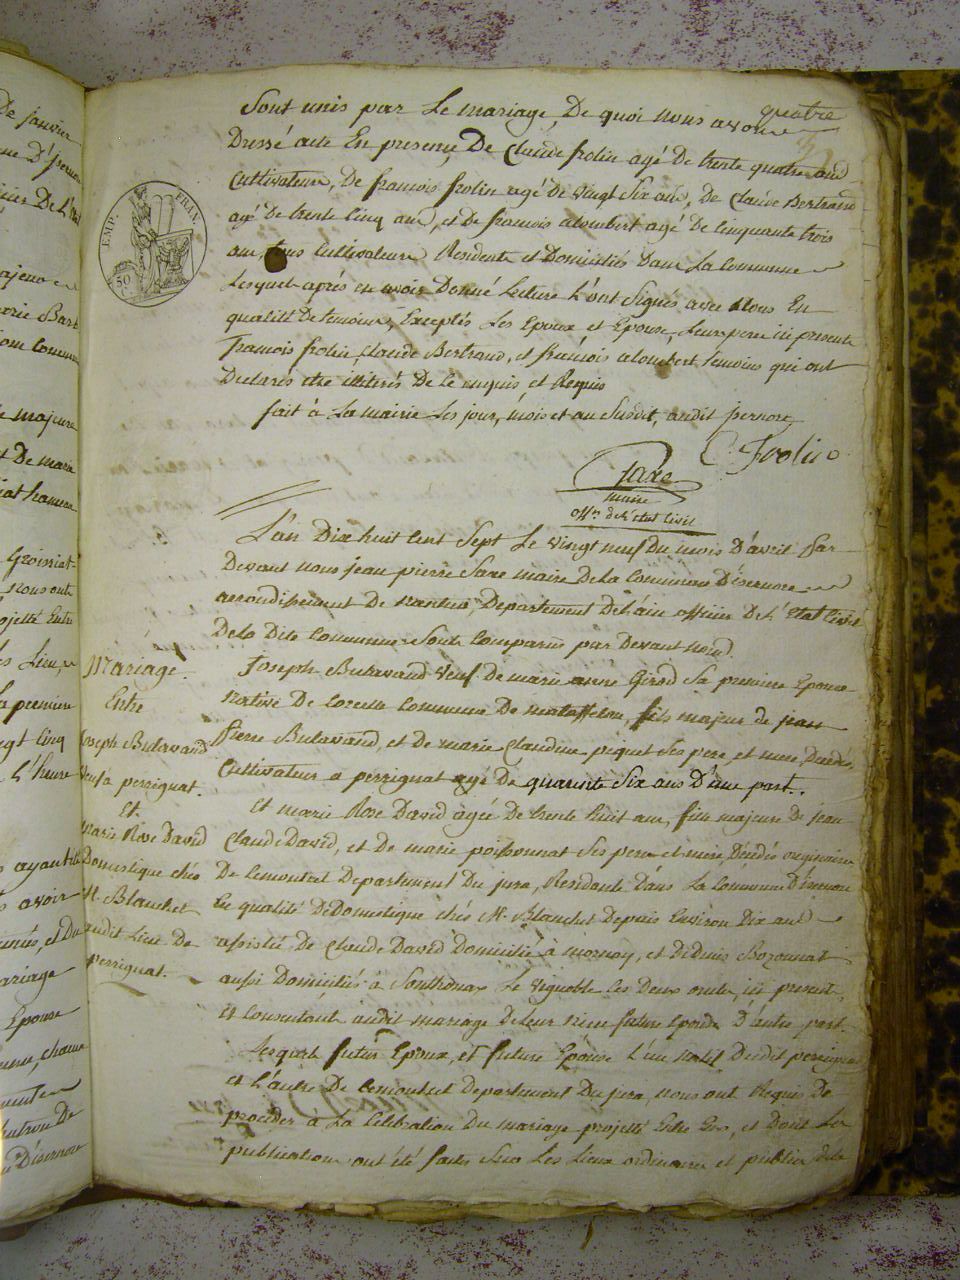 quatre
Sont unis par Le mariage, De quoi nous avons
Dressé acte En presence De Claude frolin agé De trente quatre ans
Cultivateur, De francois frolin agé De vingt Six ans, De Claude Bertrand
agé De trente Cinq ans, et De francois alombert agé De Cinquante trois
ans, tous Cultivateurs Residents et Domiciliés Dans La Commune
Lesquels après en avoir Donné Lecture L'ont Signés avec Nous En
qualité De temoins, Exceptés Les Epoux et Epouse, Leurs pere ici presents
francois frolin, Claude Bertrand, et francois alombert temoins qui ont
Declarés etre illiterés De ce enquis et Requis
fait à La mairie Les jour, mois et an Susdit, audit isernore
C. Frolin
Saxe
maire
off.er de l'etat Civil
L'an Dix huit Cent Sept Le vingt neuf Du mois D'avril Par
Devant nous jean pierre Saxe maire De La Commune D'isernore
arrondissement De nantua, Departement De L'ain officier De L'Etat Civil
De La Dite Commune Sont Comparus par Devant nous
Joseph Butavand veuf De marie anne Girod Sa premiere Epouse
native De Commune De mataffelon, fils majeur de jean
Pierre Butavand, et de marie Claudine piquet Ses pere et mere, Decedés,
Cultivateur a perrignat agé De quarante Six ans D'une part.
Et marie Rose David agée De trente huit ans, fille majeure De jean
Claude David, et De marie poissonnat Ses pere et mere, Décédés originaire
De Lemontret Departement Du jura, Residante Dans La Commune D'isernore
En qualité De Domestique chés M. Blanchet Depuis Environ Dix ans
assistée De Claude David Domicilié à mornay, et De Denis Bozonnat
aussi Domiciliés à Sonthonax Le vignoble Les Deux oncles, ici presents,
et Consentant audit mariage De Leur niece future Epouse D'autre part.
Lesquels futur Epoux, et future Epouse L'un natif Dudit perrignat
et L'autre De Lemontret Departement Du jura, nous ont Requis De
proceder a La Celebration Du mariage projetté Entre Eux, et Dont Les
publications ont été faites Sur Les Lieux ordinaires et publics de la
Mariage
Entre
Joseph Butavand
Veuf a perrignat.
Et
Marie Rose David
Domestique chés
M. Blanchet
audit Lieu De
perrignat.
EMP. FRAN.
50
C.